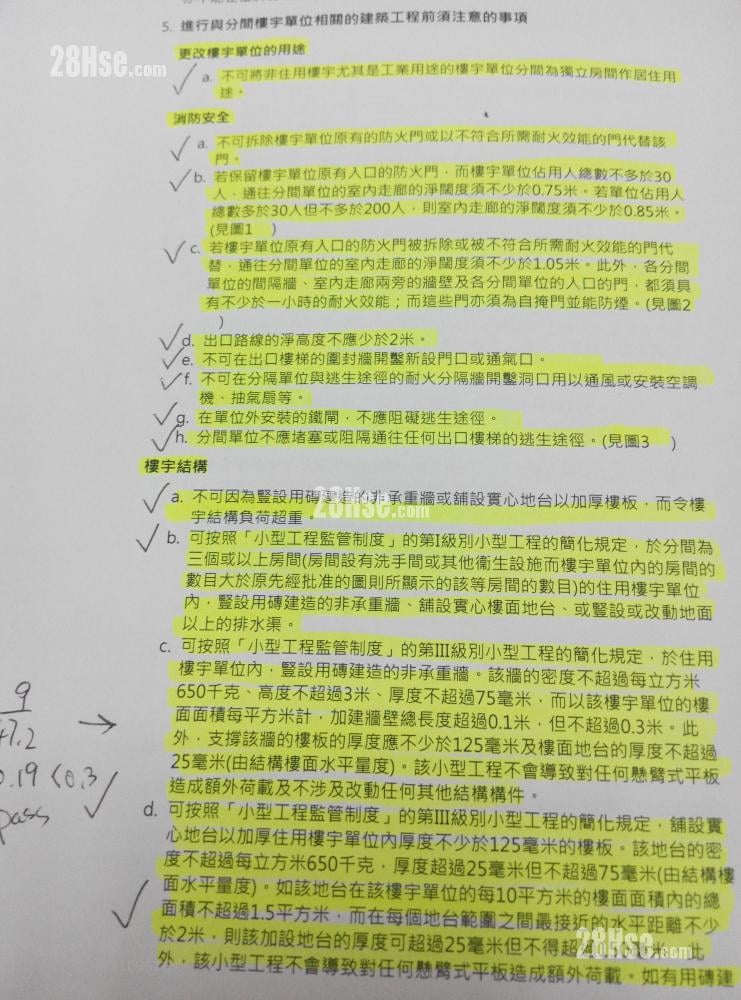 5. 進行與分間樓宇單位相關的建築工程前須注意的事項
更改樓宇單位的用途
28Hse.com
a. 不可將非住用樓宇尤其是工業用途的樓宇單位分間為獨立房間作居住用
途。
消防安全
a. 不可拆除樓宇單位原有的防火門或以不符合所需耐火效能的門代替該
門。
b. 若保留樓宇單位原有入口的防火門，而樓宇單位佔用人總數不多於30
人，通往分間單位的室內走廊的淨闊度須不少於0.75米。若單位佔用人
總數多於30人但不多於200人，則室內走廊的淨闊度須不少於0.85米。
(見圖1 )
c. 若樓宇單位原有入口的防火門被拆除或被不符合所需耐火效能的門代
替，通往分間單位的室內走廊的淨闊度須不少於1.05米。此外，各分間
單位的間隔牆、室內走廊兩旁的牆壁及各分間單位的入口的門，都須具
有不少於一小時的耐火效能；而這些門亦須為自掩門並能防煙。(見圖2
)
d. 出口路線的淨高度不應少於2米。
e. 不可在出口樓梯的圍封牆開鑿新設門口或通氣口。
f. 不可在分隔單位與逃生途徑的耐火分隔牆開鑿洞口用以通風或安裝空調
機、抽氣扇等。
g. 在單位外安裝的鐵閘，不應阻礙逃生途徑。
h. 分間單位不應堵塞或阻隔通往任何出口樓梯的逃生途徑。(見圖3 )
樓宇結構
28Hse.com
a. 不可因為豎設用磚建造的非承重牆或舖設實心地台以加厚樓板，而令樓
宇結構負荷超重。
b. 可按照「小型工程監管制度」的第I級別小型工程的簡化規定，於分間為
三個或以上房間(房間設有洗手間或其他衞生設施而樓宇單位內的房間的
數目大於原先經批准的圖則所顯示的該等房間的數目)的住用樓宇單位
內，豎設用磚建造的非承重牆、舖設實心樓面地台、或豎設或改動地面
以上的排水渠。
c. 可按照「小型工程監管制度」的第III級別小型工程的簡化規定，於住用
樓宇單位內，豎設用磚建造的非承重牆。該牆的密度不超過每立方米
650千克、高度不超過3米、厚度不超過75毫米，而以該樓宇單位的樓
面面積每平方米計，加建牆壁總長度超過0.1米，但不超過0.3米。此
外，支撐該牆的樓板的厚度應不少於125毫米及樓面地台的厚度不超過
25毫米(由結構樓面水平量度)。該小型工程不會導致對任何懸臂式平板
造成額外荷載及不涉及改動任何其他結構構件。
9
47.2
0.19 <0.3
pass
d. 可按照「小型工程監管制度」的第III級別小型工程的簡化規定，舖設實
心地台以加厚住用樓宇單位內厚度不少於125毫米的樓板。該地台的密
度不超過每立方米650千克，厚度超過25毫米但不超過75毫米(由結構樓
面水平量度)。如該地台在該樓宇單位的每10平方米的樓面面積內的總
面積不超過1.5平方米，而在每個地台範圍之間最接近的水平距離不少
於2米，則該加設地台的厚度可超過25毫米但不得超 米 此
28Hse.com
外，該小型工程不會導致對任何懸臂式平板造成額外荷載。如有用磚建